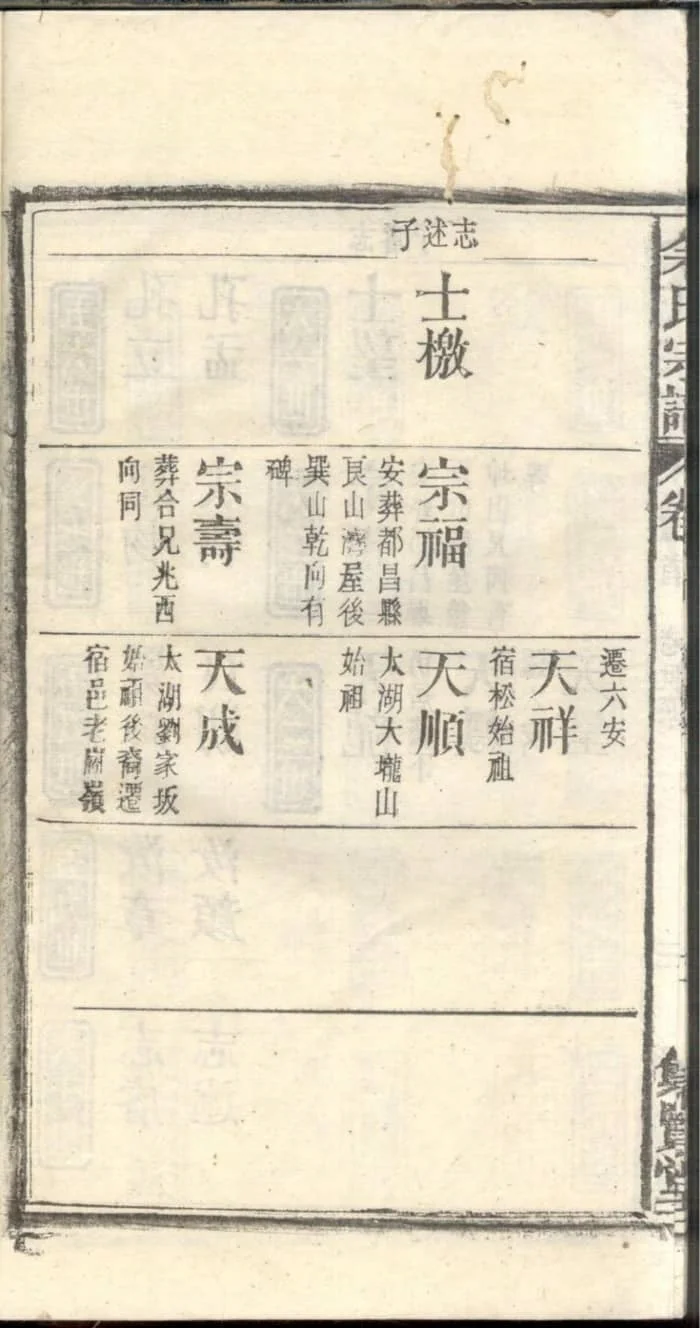 余氏宗譜
卷首
志述子
士檄
宗福
安葬都昌縣
艮山灣屋後
巽山乾向有
碑
宗壽
葬合兄兆酉
向同
遷六安
天祥
宿松始祖
天順
太湖大壠山
始祖
天成
太湖劉家坂
始祖後裔遷
宿邑老崗嶺